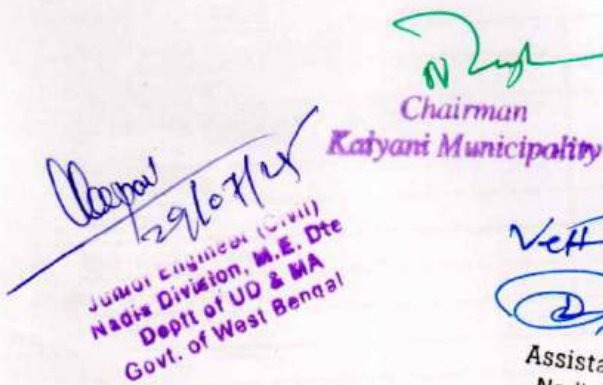 Chairman
Kalyani Municipality
29/07/25
Junior Engineer (Civil)
Nadia Division, M.E. Dte
Deptt of UD & MA
Govt. of West Bengal
Vett
Assista